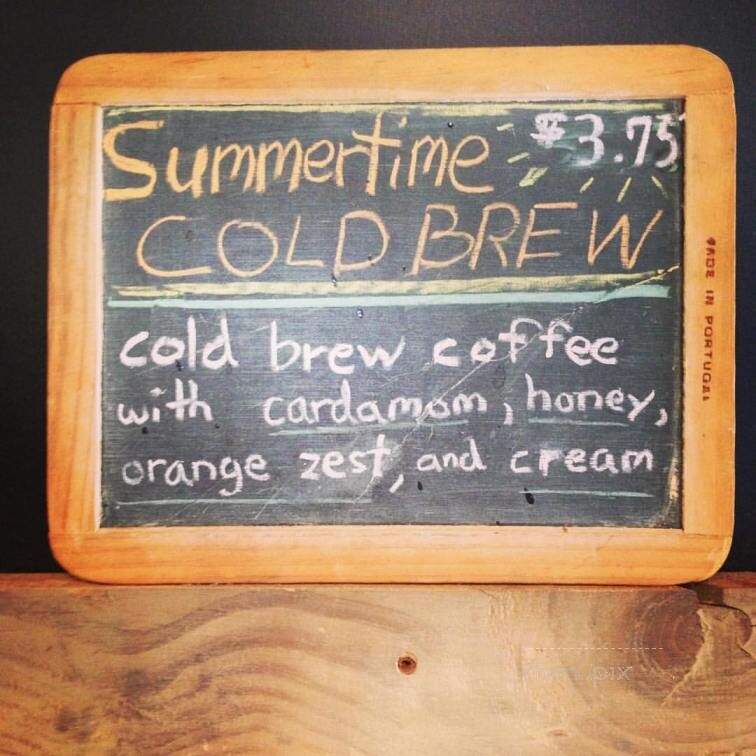 Summertime $3.75
COLD BREW
cold brew coffee
with cardamom, honey,
orange zest, and cream
MADE IN PORTUGAL